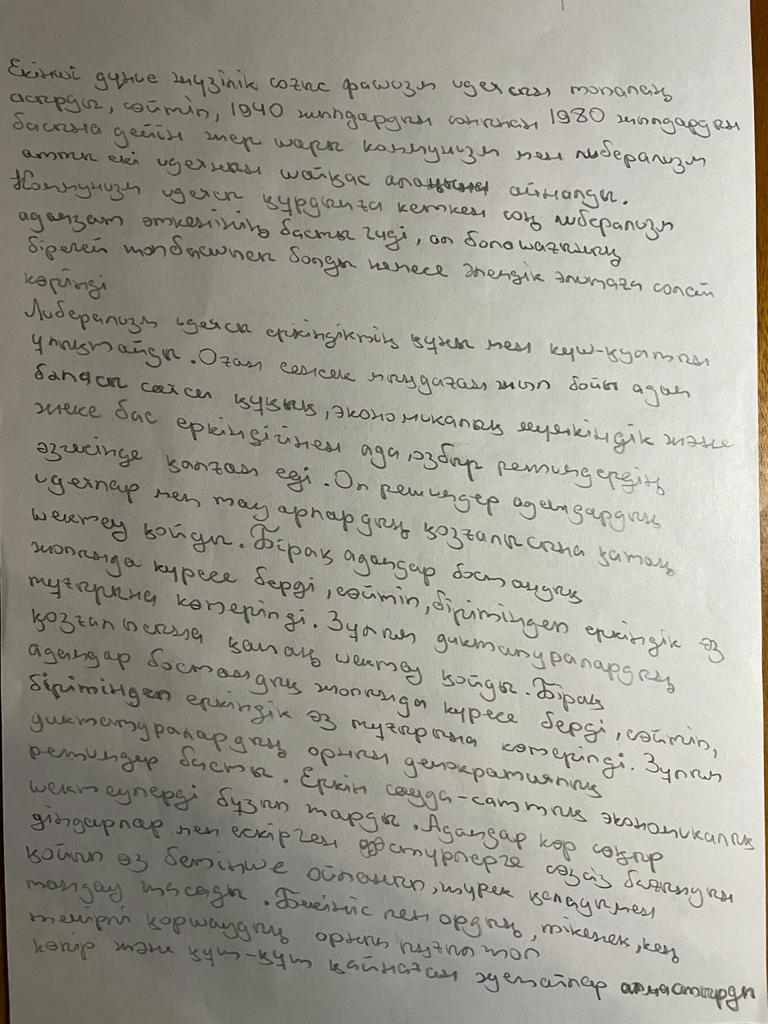 Екінші дүние жүзілік соғыс фашизм идеясын топалаң
асырды, сөйтіп, 1940 жылдардың соңынан 1980 жылдардың
басына дейін жер шары коммунизм мен либерализм
атты екі идеяның шайқас алаңына айналды.
Коммунизм идеясы құрдымға кеткен соң либерализм
адамзат өткенінің басты гиді, ал болашақтың
бірегей жолбасшысы болды немесе әлемдік элитаға солай
көрінді
Либерализм идеясы еркіндіктің құны мен күш-қуатын
ұлықтайды. Оған сенсек мыңдаған жыл бойы адам
баласы саяси құқық, экономикалық мүмкіндік және
жеке бас еркіндігінен ада, озбыр режимдердің
әзкесінде қалған еді. Ол режимдер адамдардың
идеялар мен тауарлардың қозғалысына қатаң
шектеу қойды. Бірақ адамдар бостандық
жолында күресе берді, сөйтіп, біртіндеп еркіндік өз
тұғырына көтерілді. Зұлым диктатуралардың
қозғалысына қатаң шектеу қойды. Бірақ
адамдар бостандық жолында күресе берді, сөйтіп,
біртіндеп еркіндік өз тұғырына көтерілді. Зұлым
диктатуралардың орнын демократиялық
режимдер басты. Еркін сауда-саттық экономикалық
шектеулерді бұзып жарды. Адамдар көр соқыр
діндарлар мен ескірген дәстүрлерге сөзсіз бағынуын
қойып өз бетінше ойланып, жүрек қалауымен
таңдау жасады. Бекініс пен ордың, тікенек, кең
темірлі қоршаудың орнын мызғымас
көпір және құж-құж қайнаған әуежайлар алмастырды